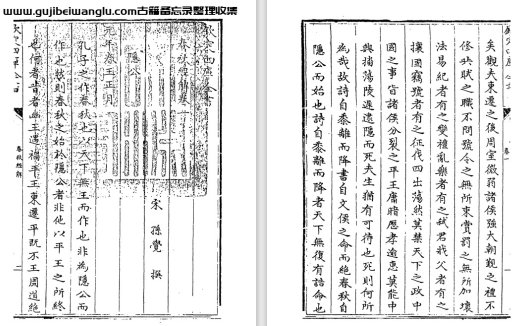 www.gujibeiwanglu.com古籍备忘录整理收集
欽定四庫全書
春秋經解卷一
宋 孫覺 撰
隱公
元年春王正月
孔子之作春秋也以天下無王而作也非為隱公而
作也然則春秋之始於隱公者非他以平王之所終
也何者昔者幽王遇禍平王東遷平既不王周道絕
欽定四庫全書
春秋經解
矣觀夫東遷之後周室微弱諸侯強大朝覲之禮不
修貢賦之職不問號令之無所束賞罰之無所加壞
法易紀者有之變禮亂樂者有之弒君戕父者有之
攘國竊號者有之征伐四出蕩然莫禁天下之政中
國之事皆諸侯分裂之平王庸暗歷孝逾惠莫能中
興播蕩陵遲逮隱而死夫生猶有可待也死則何所
為哉故詩自黍離而降書自文侯之命而絕春秋自
隱公而始也詩自黍離而降者天下無復有誥命也